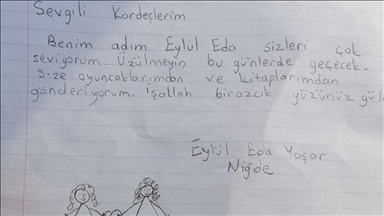 Sevgili Kardeşlerim
Benim adım Eylül Eda sizleri çok
seviyorum. Üzülmeyin bu günlerde geçecek.
Size oyuncaklarımdan ve kitaplarımdan
gönderiyorum. İşallah birazcık yüzünüz gül
Eylül Eda Yaşar
Niğde